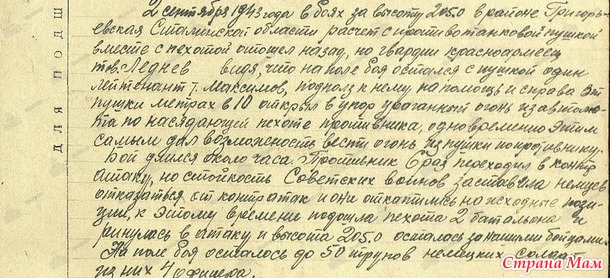 2 сентября 1943 года в боях за высоту 205.0 в районе Григорь-
евская Сталинской области расчет с противотанковой пушкой
вместе с пехотой отошел назад, но гвардии красноармеец
тов. Леднев видя, что на поле боя остался с пушкой один
лейтенант т. Максимов, подполз к нему на помощь и справа от
пушки метрах в 10 открыл в упор ураганный огонь из автома-
та по наседающей пехоте противника, одновременно этим
самым дал возможность вести огонь из пушки по противнику.
Бой длился около часа. Противник 6 раз переходил в контр
атаку, но стойкость Советских воинов заставила немцев
отказаться от контратак и они откатились на исходные пози-
ции, к этому времени подошла пехота 2 батальона и
ринулась в атаку и высота 205.0 осталась за нашими бойцами.
На поле боя осталось до 50 трупов немецких солдат
из них 4 офицера.
ДЛЯ ПОДШ
Страна Мам